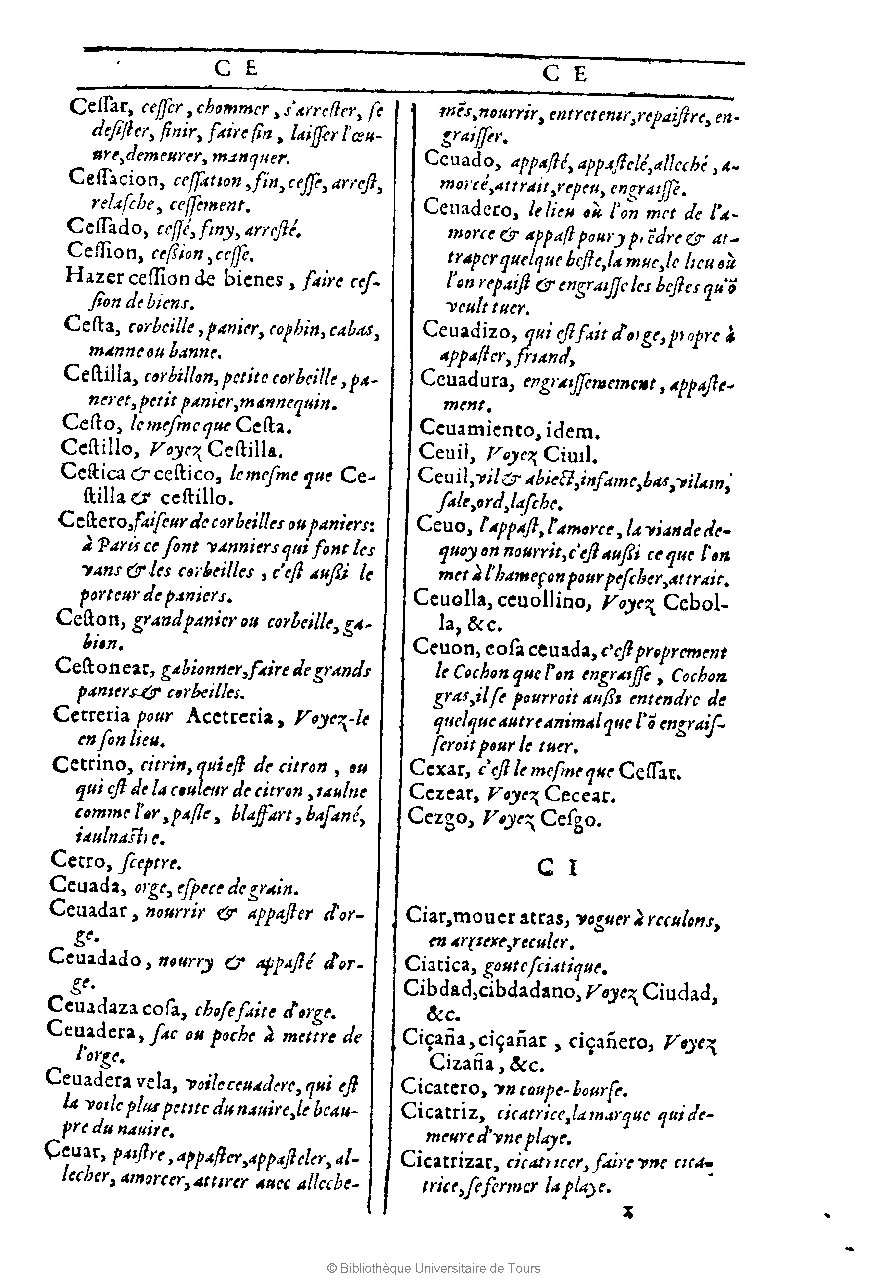 C E
Ceſſar, ceſſer, chommer, s'arreſter, ſe
deſiſter, finir, faire fin, laiſſer l'œu-
ure, demeurer, manquer.
Ceſſacion, ceſſation, fin, ceſſe, arreſt,
relaſche, ceſſement.
Ceſſado, ceſſé, finy, arreſté.
Ceſſion, ceßion, ceſſe.
Hazer ceſſion de bienes, faire ceſ-
ſion de biens.
Ceſta, corbeille, panier, cophin, cabas,
manne ou banne.
Ceſtilla, corbillon, petite corbeille, pa-
neret, petit panier, mannequin.
Ceſto, le meſme que Ceſta.
Ceſtillo, Voyez Ceſtilla.
Ceſtica & ceſtico, le meſme que Ce-
ſtilla & ceſtillo.
Ceſtero, faiſeur de corbeilles ou paniers:
à Paris ce ſont vanniers qui font les
vans & les corbeilles, c'eſt außi le
porteur de paniers.
Ceſton, grand panier ou corbeille, ga-
bion.
Ceſtonear, gabionner, faire de grands
paniers & corbeilles.
Cetreria pour Acetreria, Voyez-le
en ſon lieu.
Cetrino, citrin, qui eſt de citron, ou
qui eſt de la couleur de citron, iaulne
comme l'or, paſle, blaffart, baſané,
iaulnaſtre.
Cetro, ſceptre.
Ceuada, orge, eſpece de grain.
Ceuadar, nourrir & appaſter d'or-
ge.
Ceuadado, nourry & appaſté d'or-
ge.
Ceuadaza coſa, choſe faite d'orge.
Ceuadera, ſac ou poche à mettre de
l'orge.
Ceuadera vela, voile ceuadere, qui eſt
la voile plus petite du nauire, le beau-
pre du nauire.
Ceuar, paiſtre, appaſter, appaſteler, al-
lecher, amorcer, attirer auec alleche-
C E
mẽs, nourrir, entretenir, repaiſtre, en-
graiſſer.
Ceuado, appaſté, appaſtelé, alleché, a-
morcé, attrait, repeu, engraiſſé.
Ceuadero, le lieu où l'on met de l'a-
morce & appaſt pour y prẽdre & at-
traper quelque beſte, la mue, le lieu où
l'on repaiſt & engraiſſe les beſtes qu'õ
veult tuer.
Ceuadizo, qui eſt fait d'orge, propre à
appaſter, friand,
Ceuadura, engraiſſement, appaſte-
ment.
Ceuamiento, idem.
Ceuil, Voyez Ciuil.
Ceuil, vil & abiect, infame, bas, vilain,
ſale, ord, laſche.
Ceuo, l'appaſt, l'amorce, la viande de-
quoy on nourrit, c'eſt außi ce que l'on
met à l'hameçon pour peſcher, attrait.
Ceuolla, ceuollino, Voyez Cebol-
la, &c.
Ceuon, coſa ceuada, c'eſt proprement
le Cochon que l'on engraiſſe, Cochon
gras, il ſe pourroit außi entendre de
quelque autre animal que l'õ engraiſ-
ſeroit pour le tuer.
Cexar, c'eſt le meſme que Ceſſar.
Cezear, Voyez Cecear.
Cezgo, Voyez Ceſgo.
C I
Ciar, mouer atras, voguer à reculons,
en arriere, reculer.
Ciatica, goute ſciatique.
Cibdad, cibdadano, Voyez Ciudad,
&c.
Ciçaña, ciçañar, ciçañero, Voyez
Cizaña, &c.
Cicatero, vn coupe-bourſe.
Cicatriz, cicatrice, la marque qui de-
meure d'vne playe.
Cicatrizar, cicatricer, faire vne cica-
trice, ſe fermer la playe.
x
© Bibliothèque Universitaire de Tours